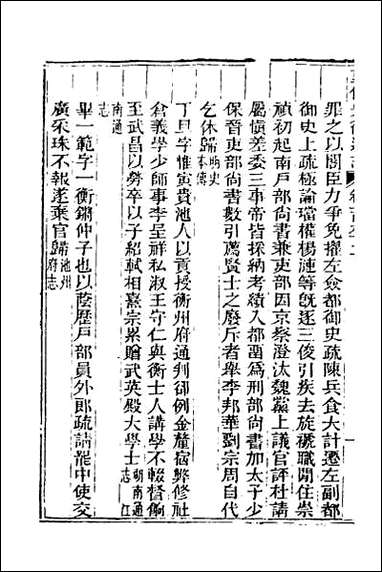 罪之以閣臣力爭免擢左僉都御史疏陳兵食大計遷左副都
御史上疏極論璫權楊漣等旣逐三俊引疾去旋褫職閒住崇
禎初起南戶部尚書兼吏部因京察澄汰魏黨上議官評杜請
屬愼差委三事帝皆採納考績入都留爲刑部尚書加太子少
保晉吏部尚書數引薦賢士之廢斥者舉李邦華劉宗周自代
乞休歸明史本傳
丁旦字惟寅貴池人以貢授衡州府通判御例金釐宿弊修社
倉義學少師事李呈祥私淑王守仁與衡士人講學不輟督餉
至武昌以勞卒以子紹軾相熹宗累贈武英殿大學士湖南通志 江
南通志
畢一範字一衡鏘仲子也以蔭歷戶部員外郎疏請罷中使交
廣采珠不報遂棄官歸池州府志